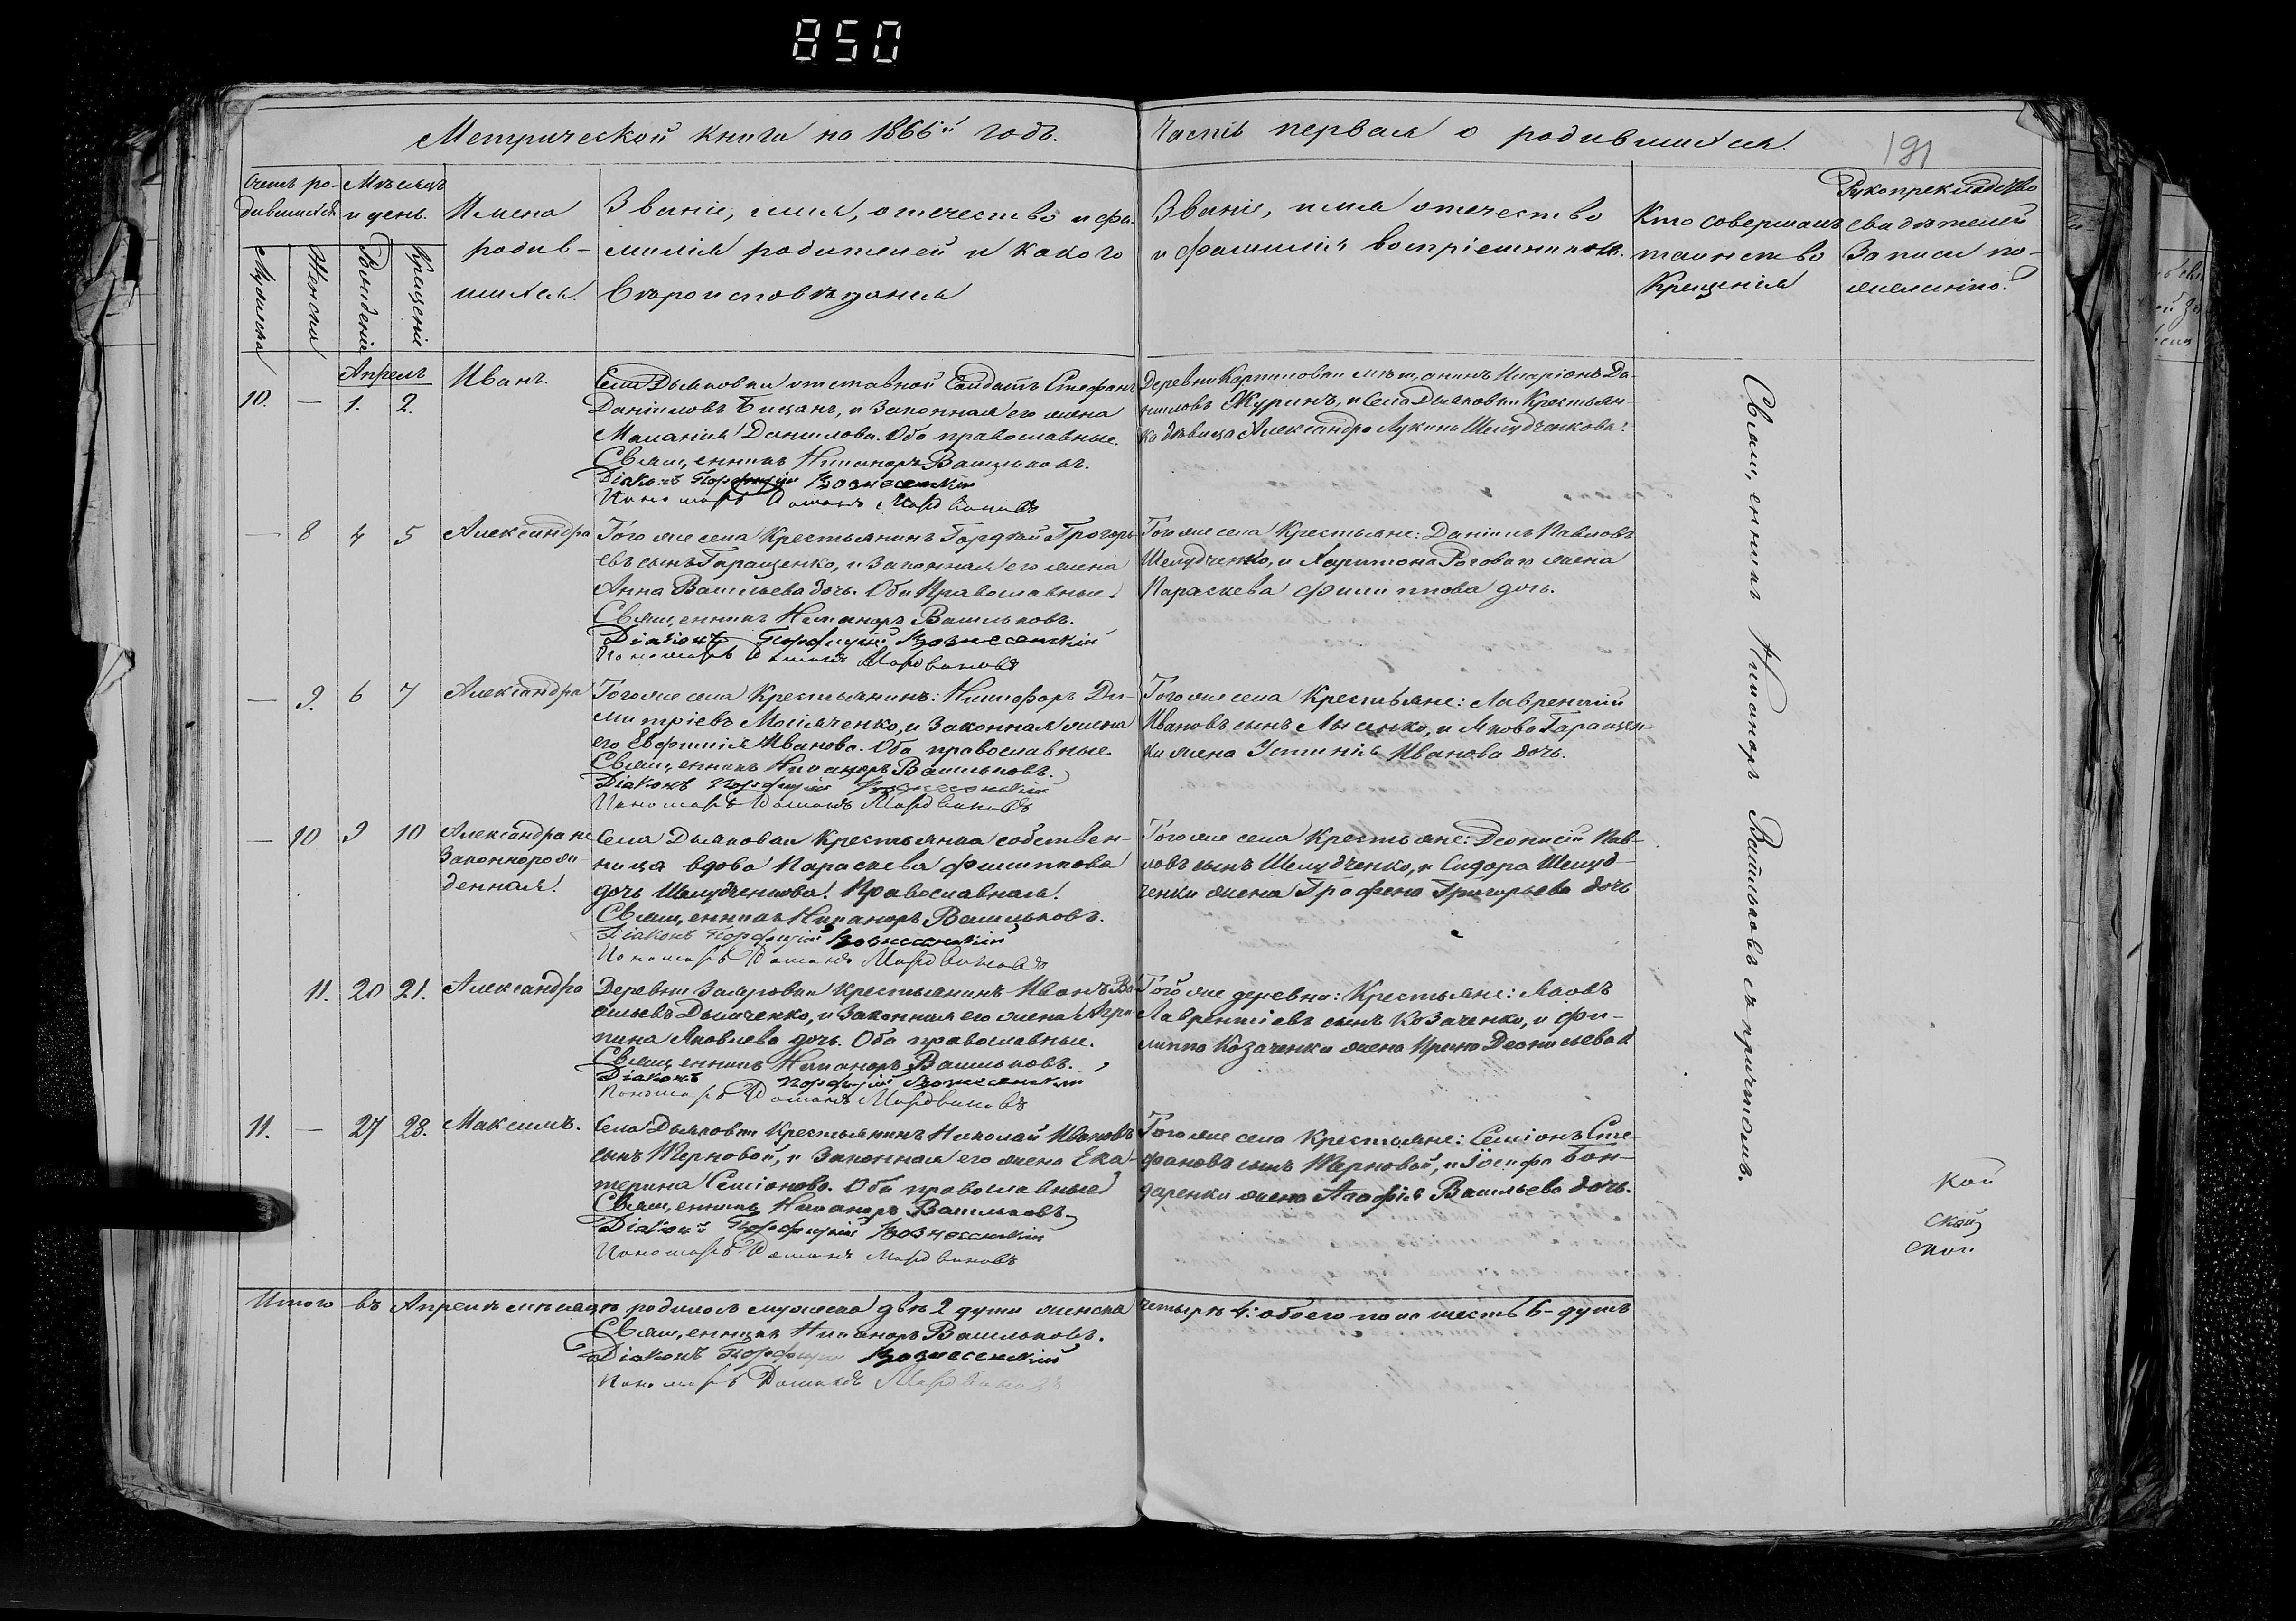 850
Метрической книга на 1866й годъ.
Часть первая о родившихся.
191
Счетъ ро-
дившихся
Мужеска
Женска
Мѣсяцъ
и день.
Рожденіе
Крещеніе
Имена
родив-
шихся.
Званіе, имя, отечество и фа-
милія родителей и какого
Вѣроисповѣданія
Званіе, имя отечество
и фамилія воспріемниковъ.
Кто совершалъ
таинство
Крещенія
Рукоприкладство
свидѣтелей
Записи по
желанію.
Апрель
10. — 1. 2.
Иванъ.
Села Дьяковки отставной Солдатъ Стефанъ
Даніиловъ Бицанъ, и Законная его жена
Маланія Данилова. Оба православные.
Священникъ Никаноръ Васильковъ.
Діаконъ Порфирій Вознесенскій
Пономарь Романъ Мордвиновъ
Деревни Карпиловки мѣщанинъ Иларіонъ Да-
ниловъ Журинъ, и Села Дьяковки Крестьян-
ка дѣвица Александра Лукина Шелудченкова.
— 8 4 5
Александра
Того же села Крестьянинъ Гордѣй Григорь-
евъ сынъ Гаращенко, и Законная его жена
Анна Васильева дочь. Оба Православные.
Священникъ Никаноръ Васильковъ.
Діаконъ Порфирій Вознесенскій
Пономарь Романъ Мордвиновъ
Того же села Крестьяне: Даніилъ Павловъ
Шелудченко, и Харитона Роговаго жена
Параскева Филиппова дочь.
— 9. 6 7
Александра
Того же села Крестьянинъ: Никифоръ Ди-
митріевъ Мосіяченко, и Законная жена
его Евфимія Иванова. Оба православные.
Священникъ Никаноръ Васильковъ.
Діаконъ Порфирій Вознесенскій
Пономарь Романъ Мордвиновъ
Того же села Крестьяне: Лаврентій
Ивановъ сынъ Лысенко, и Якова Гаращен-
ки жена Устинія Иванова дочь.
— 10 9 10
Александра не
Законнорож-
денная.
Села Дьяковки Крестьянка собствен-
ница вдова Параскева Филиппова
дочь Шелудченкова. Православная.
Священникъ Никаноръ Васильковъ.
Діаконъ Порфирій Вознесенскій
Пономарь Романъ Мордвиновъ
Того же села Крестьяне: Деонисій Пав-
ловъ сынъ Шелудченко, и Сидора Шелуд-
ченки жена Графена Григорьева дочь
11. 20 21.
Александра
Деревни Крестьянинъ Иванъ Ва-
сильевъ Дьяченко, и Законная его жена Агри-
пина Яковлева дочь. Оба православные.
Священникъ Никаноръ Васильковъ.
Діаконъ Порфирій Вознесенскій
Пономарь Романъ Мордвиновъ
Той же деревни: Крестьяне: Яковъ
Лаврентіевъ сынъ Козаченко, и Фи-
липпа Козаченки жена Ирина Деонисьева
11. — 27 28.
Максимъ.
Села Дьяковки Крестьянинъ Николай Ивановъ
сынъ Терновой, и Законная его жена Ека-
терина Семіонова. Оба православные
Священникъ Никаноръ Васильковъ
Діаконъ Порфирій Вознесенскій
Пономарь Романъ Мордвиновъ
Того же села Крестьяне: Семіонъ Сте-
фановъ сынъ Терновой, и Іосифа Бон-
даренки жена Агафія Васильева дочь.
Священникъ Никаноръ Васильковъ съ причтомъ.
кой
ской
ской
Итого въ Апрелѣ мѣсяцѣ родилось мужеска двѣ 2 души женска четырѣ 4: обоего пола шесть 6-душъ
Священникъ Никаноръ Васильковъ.
Діаконъ Порфирій Вознесенскій
Пономарь Романъ Мордвиновъ